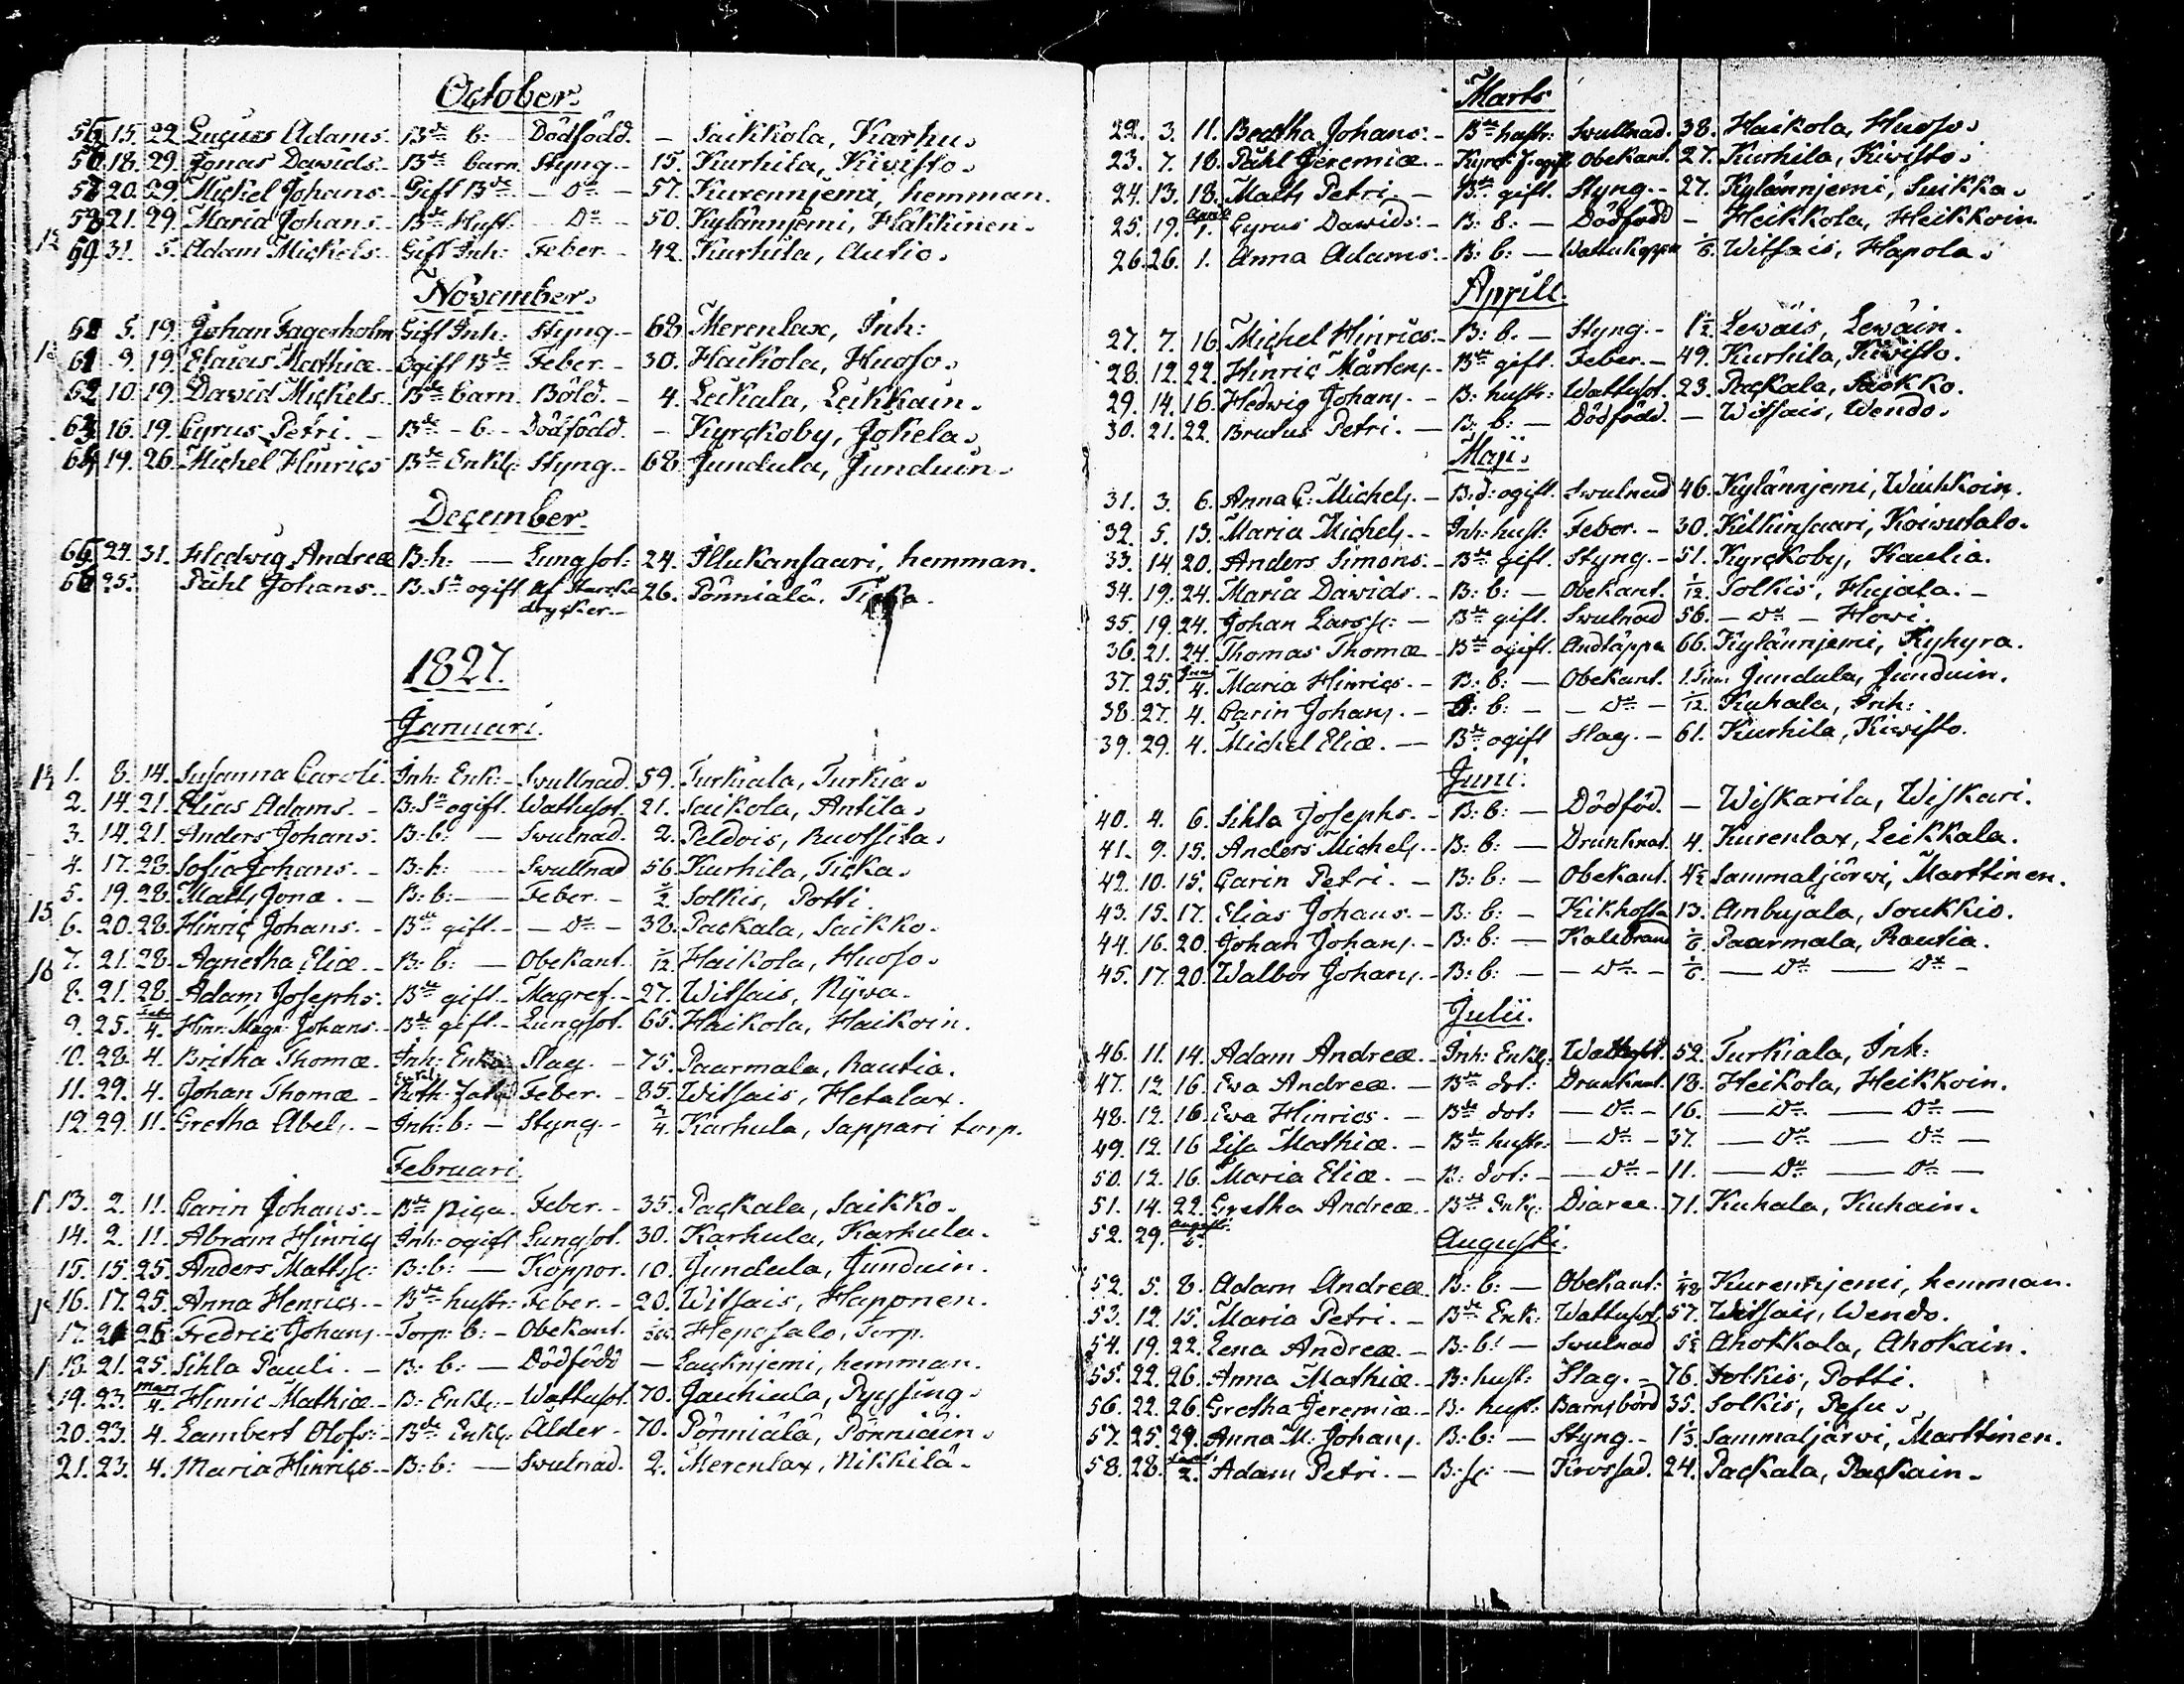 October.
55. 15. 22. Lucus Adams. Bde b: — Dödfödd. — Saikkola, Karhu.
56. 18. 29. Jonas Dawids. Bde barn. Styng. 15. Kurhila, Kiwisto.
57. 20. 29. Michel Johans. Gift Bde — do — 57. Kurennjemi, hemman.
58. 21. 29. Maria Johans. Bde Hust. do 50. Kylännjemi, Häkkinen.
59. 31. 5. Adam Michels. Gift Inh: Feber. 42. Kurhila, Autio.
November.
5. 19. Johan Fagerholm Gift Inh: Styng. 68. Merenlax, Inh:
61. 9. 19. Mathiæ. Ogift Bde Feber. 30. Haikola, Huoso.
62. 10. 19. Dawid Michels. Bde barn. Böld. 4. Leikala, Leikkain.
63. 16. 19. Cyrus Petri. Bde b. Dödfödd. — Kyrckoby, Jokela.
64. 19. 26. Michel Hinrics Bde Enkl: Styng. 68. Jundula, Junduin.
December.
65. 24. 31. Hedwig Andreæ B:h: — Lungsot: 24. Illukansaari, hemman.
66. 25. Påhl Johans. B. Sn ogift Af starcka drycker. 26. Pönniälä,
1827.
Januari.
1. 8. 14. Susanna Caroli. Inh: Enk: Swullnad. 59. Turkiala, Turkia.
2. 14. 21. Elias Adams. B:Sn ogift. Wattusot. 21. Saikola, Antila.
3. 14. 21. Anders Johans. B:b: — Swulnad. 2. Peldois, Ruotsila.
4. 17. 23. Sofia Johans. B:h: Swullnad 56. Kurhila, Ticka.
5. 19. 28. Matts Jonæ. B:b: — Feber. ½ Solkis, Potti.
6. 20. 28. Hinric Johans. Bde gift. — do — 38. Packala, Saikko.
7. 21. 28. Agnetha Eliæ. B:b: — Obekant. 1/12 Haikola, Huoso.
8. 21. 28. Adam Josephs. Bde gift. Magref. 27. Witsais, Nÿwa.
9. 25. Feb 4. Hinr: Magn: Johans. Bde gift. Lungsot. 65. Haikola, Haikoin.
10. 28. 4. Britha Thomæ. Inh: Enka Slag. 75. Paarmala, Rautia.
11. 29. 4. Johan Thomæ Feber. 85. Witsais, Hetalax.
12. 29. 11. Gretha Abel. Inh: b: — Styng. ¾. Karhula, Sappari torp.
Februari.
13. 2. 11. Carin Johans. Bde piga. Feber. 35. Packala, Saikko.
14. 2. 11. Abram Hinrics Inh: ogift Lungsot. 30. Karhula, Karhula.
15. 15. 25. Anders Matts: B:b: — Koppor. 10. Jundula, Junduin.
16. 17. 25. Anna Henrics. Bde hustr: Feber. 20. Witsais, Happonen.
17. 21 25 Fredric Johans. Torp: b: Obekant. Hepogsalo, Torp.
18. 21. 25. Sihla Pauli. B: b: — Dödfödd — Lauknjemi, hemman.
19. 23. Mars 4. Hinric Mathiæ. B: Enkl: Wattusot. 70. Jauhiala, Pyysing.
20. 23. 4. Lambert Olofs: Bde Enkl: Alder. 70. Pönniälä, Pönniäin.
21. 23. 4. Maria Hinrics. B:b: — Swulnad. 2. Merenlax, Nikkilä.
Marts
22. 3. 11. Beatha Johans: Bde hustr: Swullnad. 38. Haikola, Huoso.
23. 7. 18. Påhl Jeremiæ. Obekant. 27. Kurhila, Kiwisto.
24. 13. 18. Matts Petri. Bde gift. Styng. 27. Kylännjemi, Suikka.
25. 19. April 1. Cyrus Dawids: B: b: — Dödfödd — Heikkola, Heikkoin.
26. 26. 1. Anna Adams: B: b: — Wattukoppor 1/6. Witsais, Hapola.
Aprill.
27. 7. 16. Michel Hinrics. B: b. — Styng. 1½ Lewäis, Lewäin.
28. 12. 22. Hinric Mårtens. Bde gift. Feber. 49. Kurhila, Kiwisto.
29. 14. 16. Hedwig Johans. B: hustr: Wattusot. 23. Packala, Saikko.
30. 21. 22. Brutus Petri. B: b: — Dödfödd. — Witsais, Wendo.
Maji.
31. 3. 6. Anna C: Michels. B:d: ogift. Swulnad 46. Kylännjemi, Wiikkoin.
32. 5. 13. Maria Michels. Inh: hust: Feber. 30. Kilkinsaari, Koiwutalo.
33. 14. 20. Anders Simons. Bde gift. Styng. 51. Kyrckoby, Kaulia.
34. 19. 24. Maria Dawids. B: b: — Obekant. 1/12 Solkis, Hujala.
35. 19. 24. Johan Larss: Bde gift. Swulnad 56. — do — Howi.
36. 21. 24. Thomas Thomæ Bde ogift. Andtäppa 66. Kylännjemi, Kyhyra.
37. 25. Juni 4. Maria Hinrics. B: b: — Obekant. 1. Tim. Jundula, Junduin.
38. 27. 4. Carin Johans. b: — do — 1/12. Kuhala, Inh:
39. 29. 4. Michel Eliæ. Bde ogift Slag. 61. Kurhila, Kiwisto.
Juni.
40. 4. 6. Sihla Josephs. B: b: — Dödföd. — Wiskarila, Wiskari.
41. 9. 15. Anders Michels. B: b: — Drunknat. 4. Kurenlax, Leikkala.
42. 10. 15. Carin Petri. B: b: — Obekant. 4½ Sammaljärwi, Marttinen.
43. 15. 17. Elias Johans. B: b: — Kikhosta 13. Ambujala, Soukkio.
44. 16. 20. Johan Johans. B: b: — Kallbrand 1/6. Paarmala, Rautia.
45. 17. 20. Walbor Johans. B: b: — do — 1/6. — do — do —
Julii.
46. 11. 14. Adam Andreæ. Inh: Enkl: Wattusot. 52. Turkiala, Inh:
47. 12. 16. Ewa Andreæ. Bde dot: Drunknat. 18. Heikola, Heikkoin.
48. 12. 16. Ewa Hinrics. Bde dot: — do — 16. — do — do —
49. 12. 16 Lisa Mathiæ. Bde hustr: — do — 37. — do — do —
50. 12. 16. Maria Eliæ. B: dot: — do — 11. — do — do —
51. 14. 22. Gretha Andreæ. Bde Enk: Diaree. 71. Kuhala, Kuhain.
52. 29. Augusti. 5.
Augusti.
52. 5. 8. Adam Andreæ. B: b: — Obekant: 1/48 Kurennjemi, hemman.
53. 12. 15. Maria Petri. Bde Enk: Wattusot. 57. Witsais, Wendo.
54. 19. 22. Lena Andreæ. B: b: — Swulnad 5½ Ahokkala, Ahokain.
55. 22. 26. Anna Mathiæ. B: hust: Slag. 76. Solkis, Potti.
56. 22. 26. Gretha Jeremiæ. B: hust: Barnsbörd 35. Solkis, Pesu.
57. 25. 29. Anna M: Johans. B: b: — Styng. 1⅓. Sammaljärwi, Marttinen.
58. 28. 2. Adam Petri. Krossad. 24. Packala, Packain.